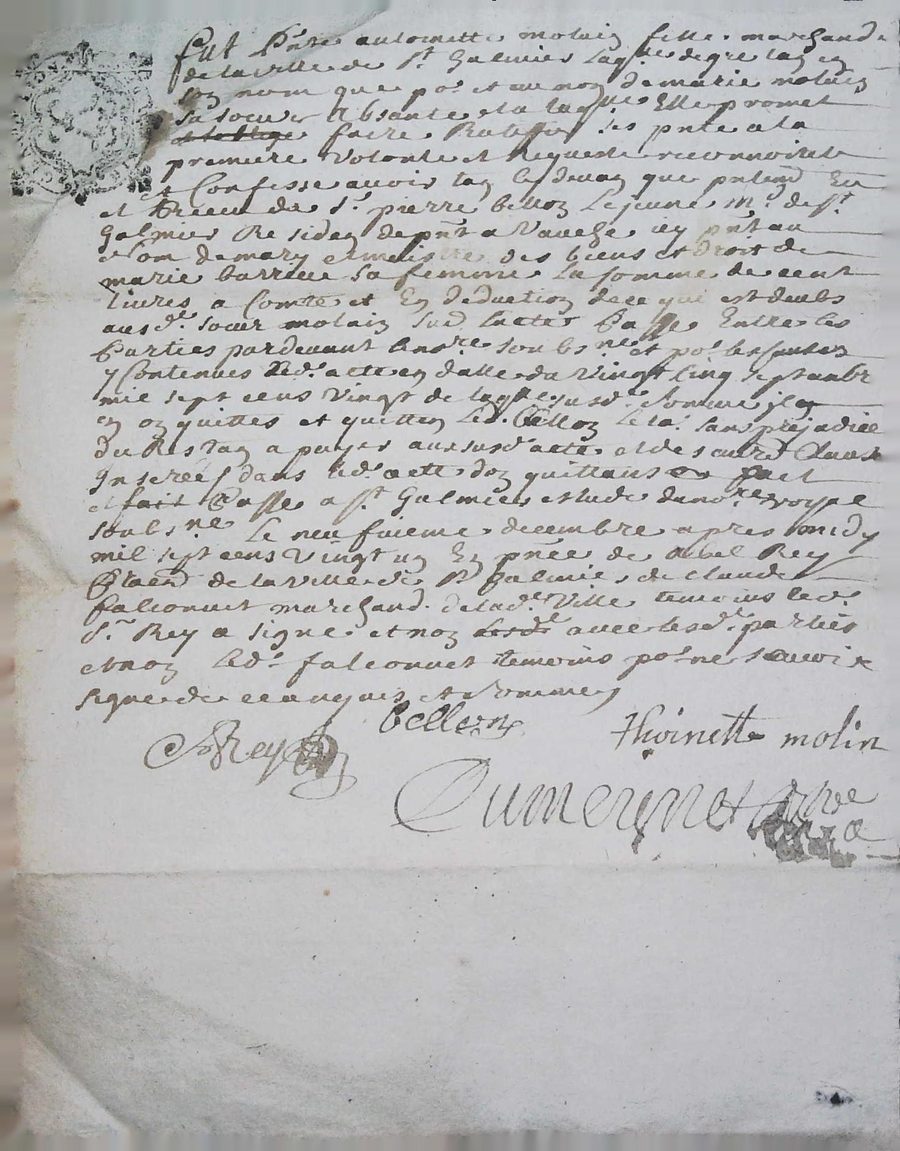 fut pnte antoinette molain fille marchande
de la ville de St Galmier laqlle degre tan en
son nom que por et au nom de marie molain
sa soeur absante et a laqlle Elle promet
faire Ratiffier les pnte a la
premiere volonte et Requeste reconnoit et
Confesse avoir tan cy devan que pntemt Eu
et Receu de Sr pierre bellon le jeune md de St
Galmier Residen de pnt a Vauche icy pnt au
Nom de mary et maistre des biens et droit de
marie barrieu sa femme la somme de cent
livres a Comte et En deduction de ce qui est deub
ausd. soeur molain sud. lacte passe Entre les
parties pardevant le nre soubne et por les cauzes
y Contenues led. acte en datte du Vingt Cinq septambre
mil sept cens vingt de laqlle susd. Somme
en on quittes et quitten led. bellon le ta. sans prejudice
du Restan a payer aususd. acte et des autres Clauses
Inserées dans led. acte don quittans fact
et fait passe a St Galmier estude du nore royal
soubsne Le neufvieme decembre apres midy
mil sept cens vingt un En pnce de abel Rey
de la ville de St Galmier de claude
falconnet marchand de lad. Ville temoins led.
Sr Rey a signe et non avec lesd. parties
et non led. falconnet temoins por ne scavoir
signe de ce anquis et sommes
Rey bellon thoinette molin
Dumeynet